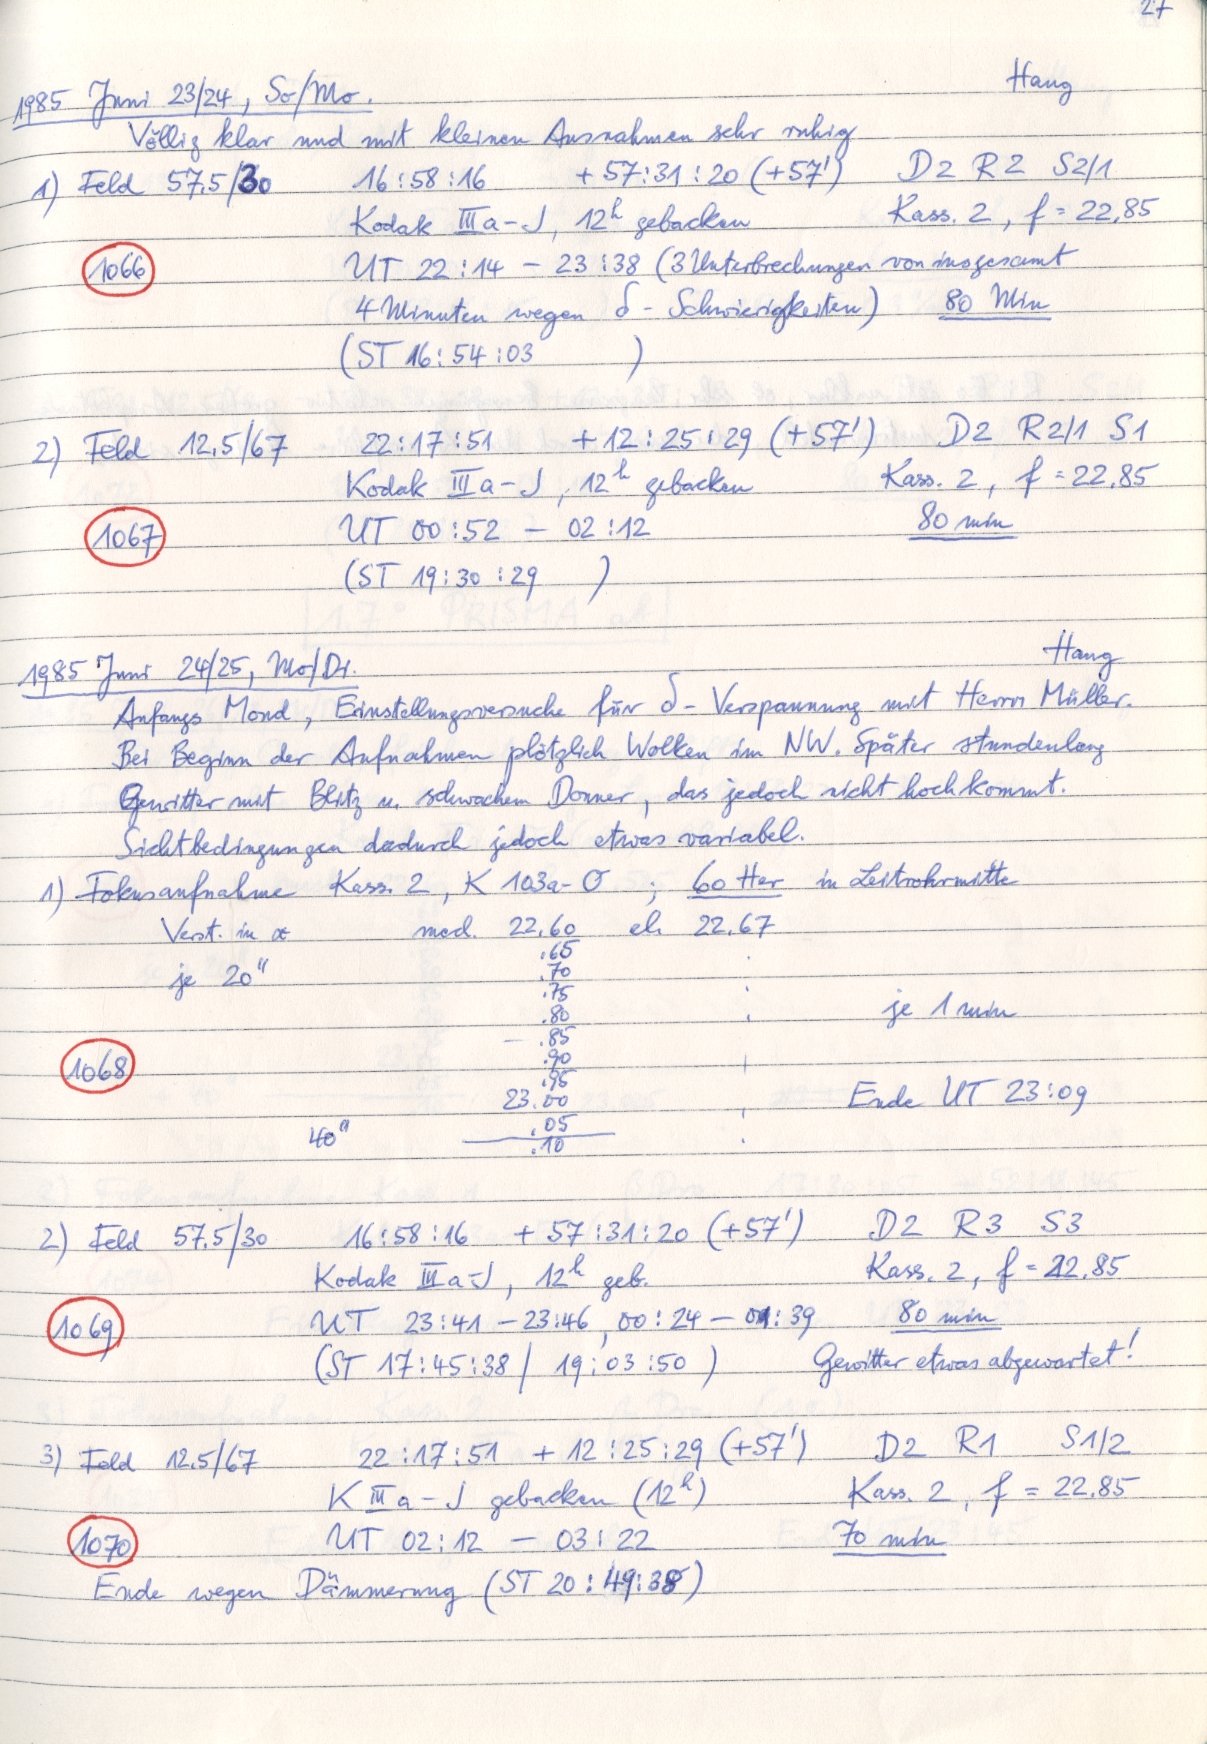 27
1985 Juni 23/24, So/Mo. Haug
Völlig klar und mit kleinen Ausnahmen sehr ruhig
1) Feld 57.5/30 16:58:16 +57:31:20 (+57') D2 R2 S2/1
Kodak IIIa-J, 12h gebacken Kass. 2, f = 22,85
1066 UT 22:14 – 23:38 (3 Unterbrechungen von insgesamt
4 Minuten wegen δ-Schwierigkeiten) 80 Min
(ST 16:54:03 )
2) Feld 12.5/67 22:17:51 +12:25:29 (+57') D2 R2/1 S1
Kodak IIIa-J, 12h gebacken Kass. 2, f = 22,85
1067 UT 00:52 – 02:12 80 min
(ST 19:30:29 )
1985 Juni 24/25, Mo/Di. Haug
Anfangs Mond, Einstellungsversuche für δ-Verspannung mit Herrn Müller.
Bei Beginn der Aufnahmen plötzlich Wolken im NW. Später stundenlang
Gewitter mit Blitz u. schwachem Donner, das jedoch nicht hochkommt.
Sichtbedingungen dadurch jedoch etwas variabel.
1) Fokusaufnahme Kass. 2, K 103a-O ; 60 Her in Leitrohrmitte
Verst. in α mech. 22.60 el. 22.67
.65
je 20" .70
.75
.80 je 1 min
– .85
1068 .90
.95
23.00 Ende UT 23:09
.05
40" .10
2) Feld 57.5/30 16:58:16 +57:31:20 (+57') D2 R3 S3
Kodak IIIa-J, 12h geb. Kass. 2, f = 22.85
1069 UT 23:41 – 23:46, 00:24 – 01:39 80 min
(ST 17:45:38 / 19:03:50 ) Gewitter etwas abgewartet!
3) Feld 12.5/67 22:17:51 +12:25:29 (+57') D2 R1 S1/2
K IIIa-J gebacken (12h) Kass. 2, f = 22.85
1070 UT 02:12 – 03:22 70 min
Ende wegen Dämmerung (ST 20:49:38)